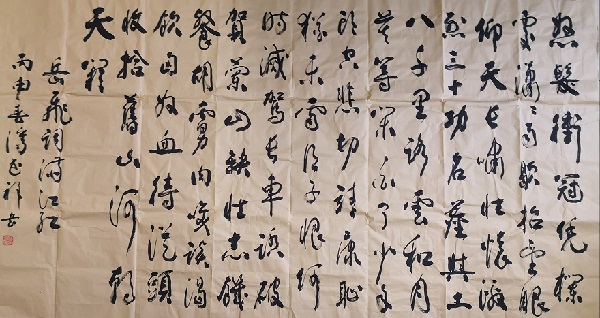 怒髮衝冠凭欄
處瀟瀟雨歇抬望眼
仰天長嘯壯懷激
烈三十功名塵與土
八千里路雲和月
莫等閑白了少年
頭空悲切靖康恥
猶未雪臣子恨何
時滅駕長車踏破
賀蘭山缺壯志饑
餐胡虜肉笑談渴
飲匈奴血待從頭
收拾舊山河朝
天闕
岳飛詞滿江紅
丙申春祥書